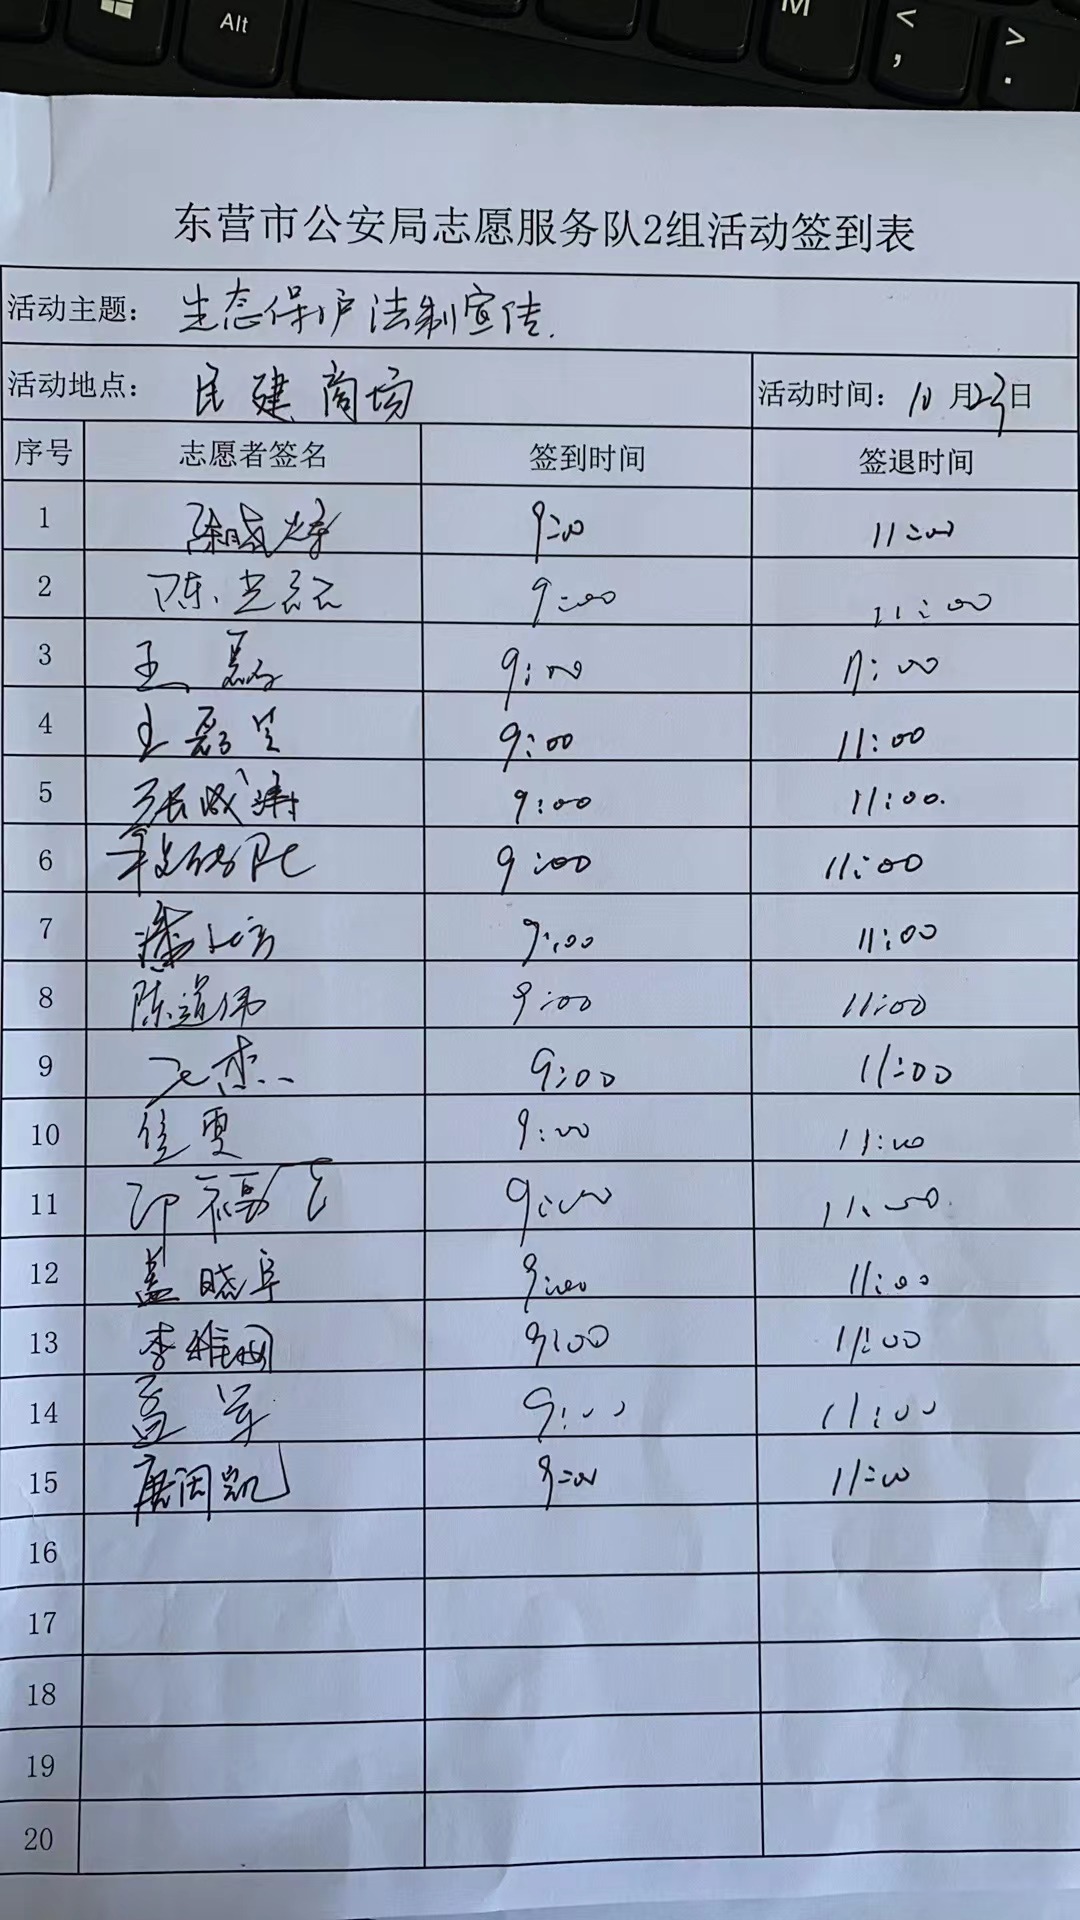 Alt
M
<
,
>
.
东营市公安局志愿服务队2组活动签到表
活动主题： 生态保护法制宣传.
活动地点： 民建商场 活动时间：10月23日
序号 志愿者签名 签到时间 签退时间
1 9:00 11:00
2 陈 9:00 11:00
3 王磊 9:00 11:00
4 王磊 9:00 11:00
5 张成 9:00 11:00.
6 9:00 11:00
7 潘 9:00 11:00
8 陈道伟 9:00 11:00
9 杰 9:00 11:00
10 任雯 9:00 11:00
11 福 9:00 11:00.
12 盖晓 9:00 11:00
13 李维 9:00 11:00
14 孟军 9:00 11:00
15 唐国凯 9:00 11:00
16
17
18
19
20